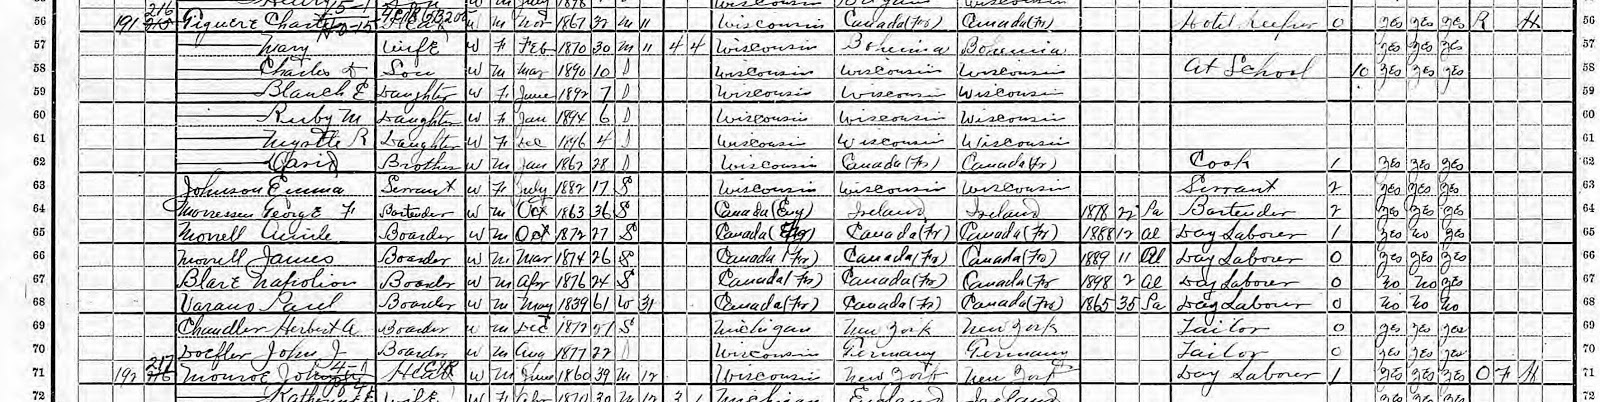 56 191 216 Piquere Charles Head W M Nov 1867 32 M 11 Wisconsin Canada(Fr) Canada(Fr) Hotel Keeper 0 yes yes yes R H 56
57 Mary Wife W F Feb 1870 30 M 11 4 4 Wisconsin Bohemia Bohemia yes yes yes 57
58 Charles D Son W M Mar 1890 10 S Wisconsin Wisconsin Wisconsin At School 10 yes yes yes 58
59 Blanch E Daughter W F June 1892 7 S Wisconsin Wisconsin Wisconsin 59
60 Ruby M Daughter W F Jan 1894 6 S Wisconsin Wisconsin Wisconsin 60
61 Myrtle R Daughter W F Dec 1896 4 S Wisconsin Wisconsin Wisconsin 61
62 David Brother W M Jan 28 S Wisconsin Canada(Fr) Canada(Fr) Cook 1 yes yes yes 62
63 Johnson Emma Servant W F July 1882 17 S Wisconsin Wisconsin Wisconsin Servant 2 yes yes yes 63
64 George F Bartender W M Oct 1863 36 S Canada(Eng) Ireland Ireland 1878 22 Pa Bartender 2 yes yes yes 64
65 Morell Boarder W M Oct 1872 27 S Canada( Canada(Fr) Canada(Fr) 1888 12 Al Day Laborer 1 yes no yes 65
66 Morell James Boarder W M Mar 1874 26 S Canada(Fr) Canada(Fr) Canada(Fr) 1889 11 Al Day Laborer 0 yes yes yes 66
67 Blare Napolion Boarder W M Apr 1876 24 S Canada(Fr) Canada(Fr) Canada(Fr 1898 2 Al Day Laborer 0 no no yes 67
68 Varano Paul Boarder W M May 1839 61 W 31 Canada(Fr) Canada(Fr) Canada(Fr) 1865 35 Pa Day Laborer 0 no no no 68
69 Chandler Herbert A Boarder W M Dec 1872 27 S Michigan New York New York Tailor 0 yes yes yes 69
70 Doefler John J Boarder W M Aug 1877 22 S Wisconsin Germany Germany Tailor 0 yes yes yes 70
71 192 217 Monroe John Head W M June 1860 39 M 12 Wisconsin New York New York Day Laborer 1 yes yes yes O F H 71
72 Wife W F Apr 1870 30 M 12 3 Michigan England Ireland yes yes yes 72